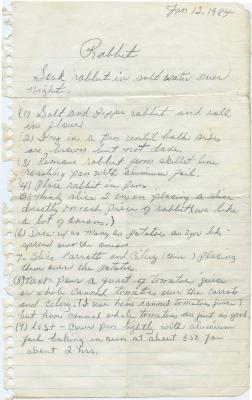 Jan 12, 1984
Rabbit
Soak rabbit in salt water over
night.
(1) Salt and Pepper rabbit and roll
in flour
(2) Fry in a pan until both sides
are brown but not done.
(3) Remove rabbit from skillet line
roasting pan with alumum foil.
(4) Place rabbit in pans.
(5) thinly slice 2 onion placing a slice
directly on each piece of rabbit (we like
a lot of onions.)
(6) Dice up as many as potatoes as you like -
spread over the onions
7. Slice Carrotts and Celery placing
them over the potatoes.
(8) Next pour a quart of tomatoe juice
or whole canned tomatoes over the carrots
and celery. (I use home canned tomatoes juice)
but home canned whole tomatoes are just as good.
(9) Last - Cover pan tightly with alumium
foil baking in oven at about 350 for
about 2 hrs.